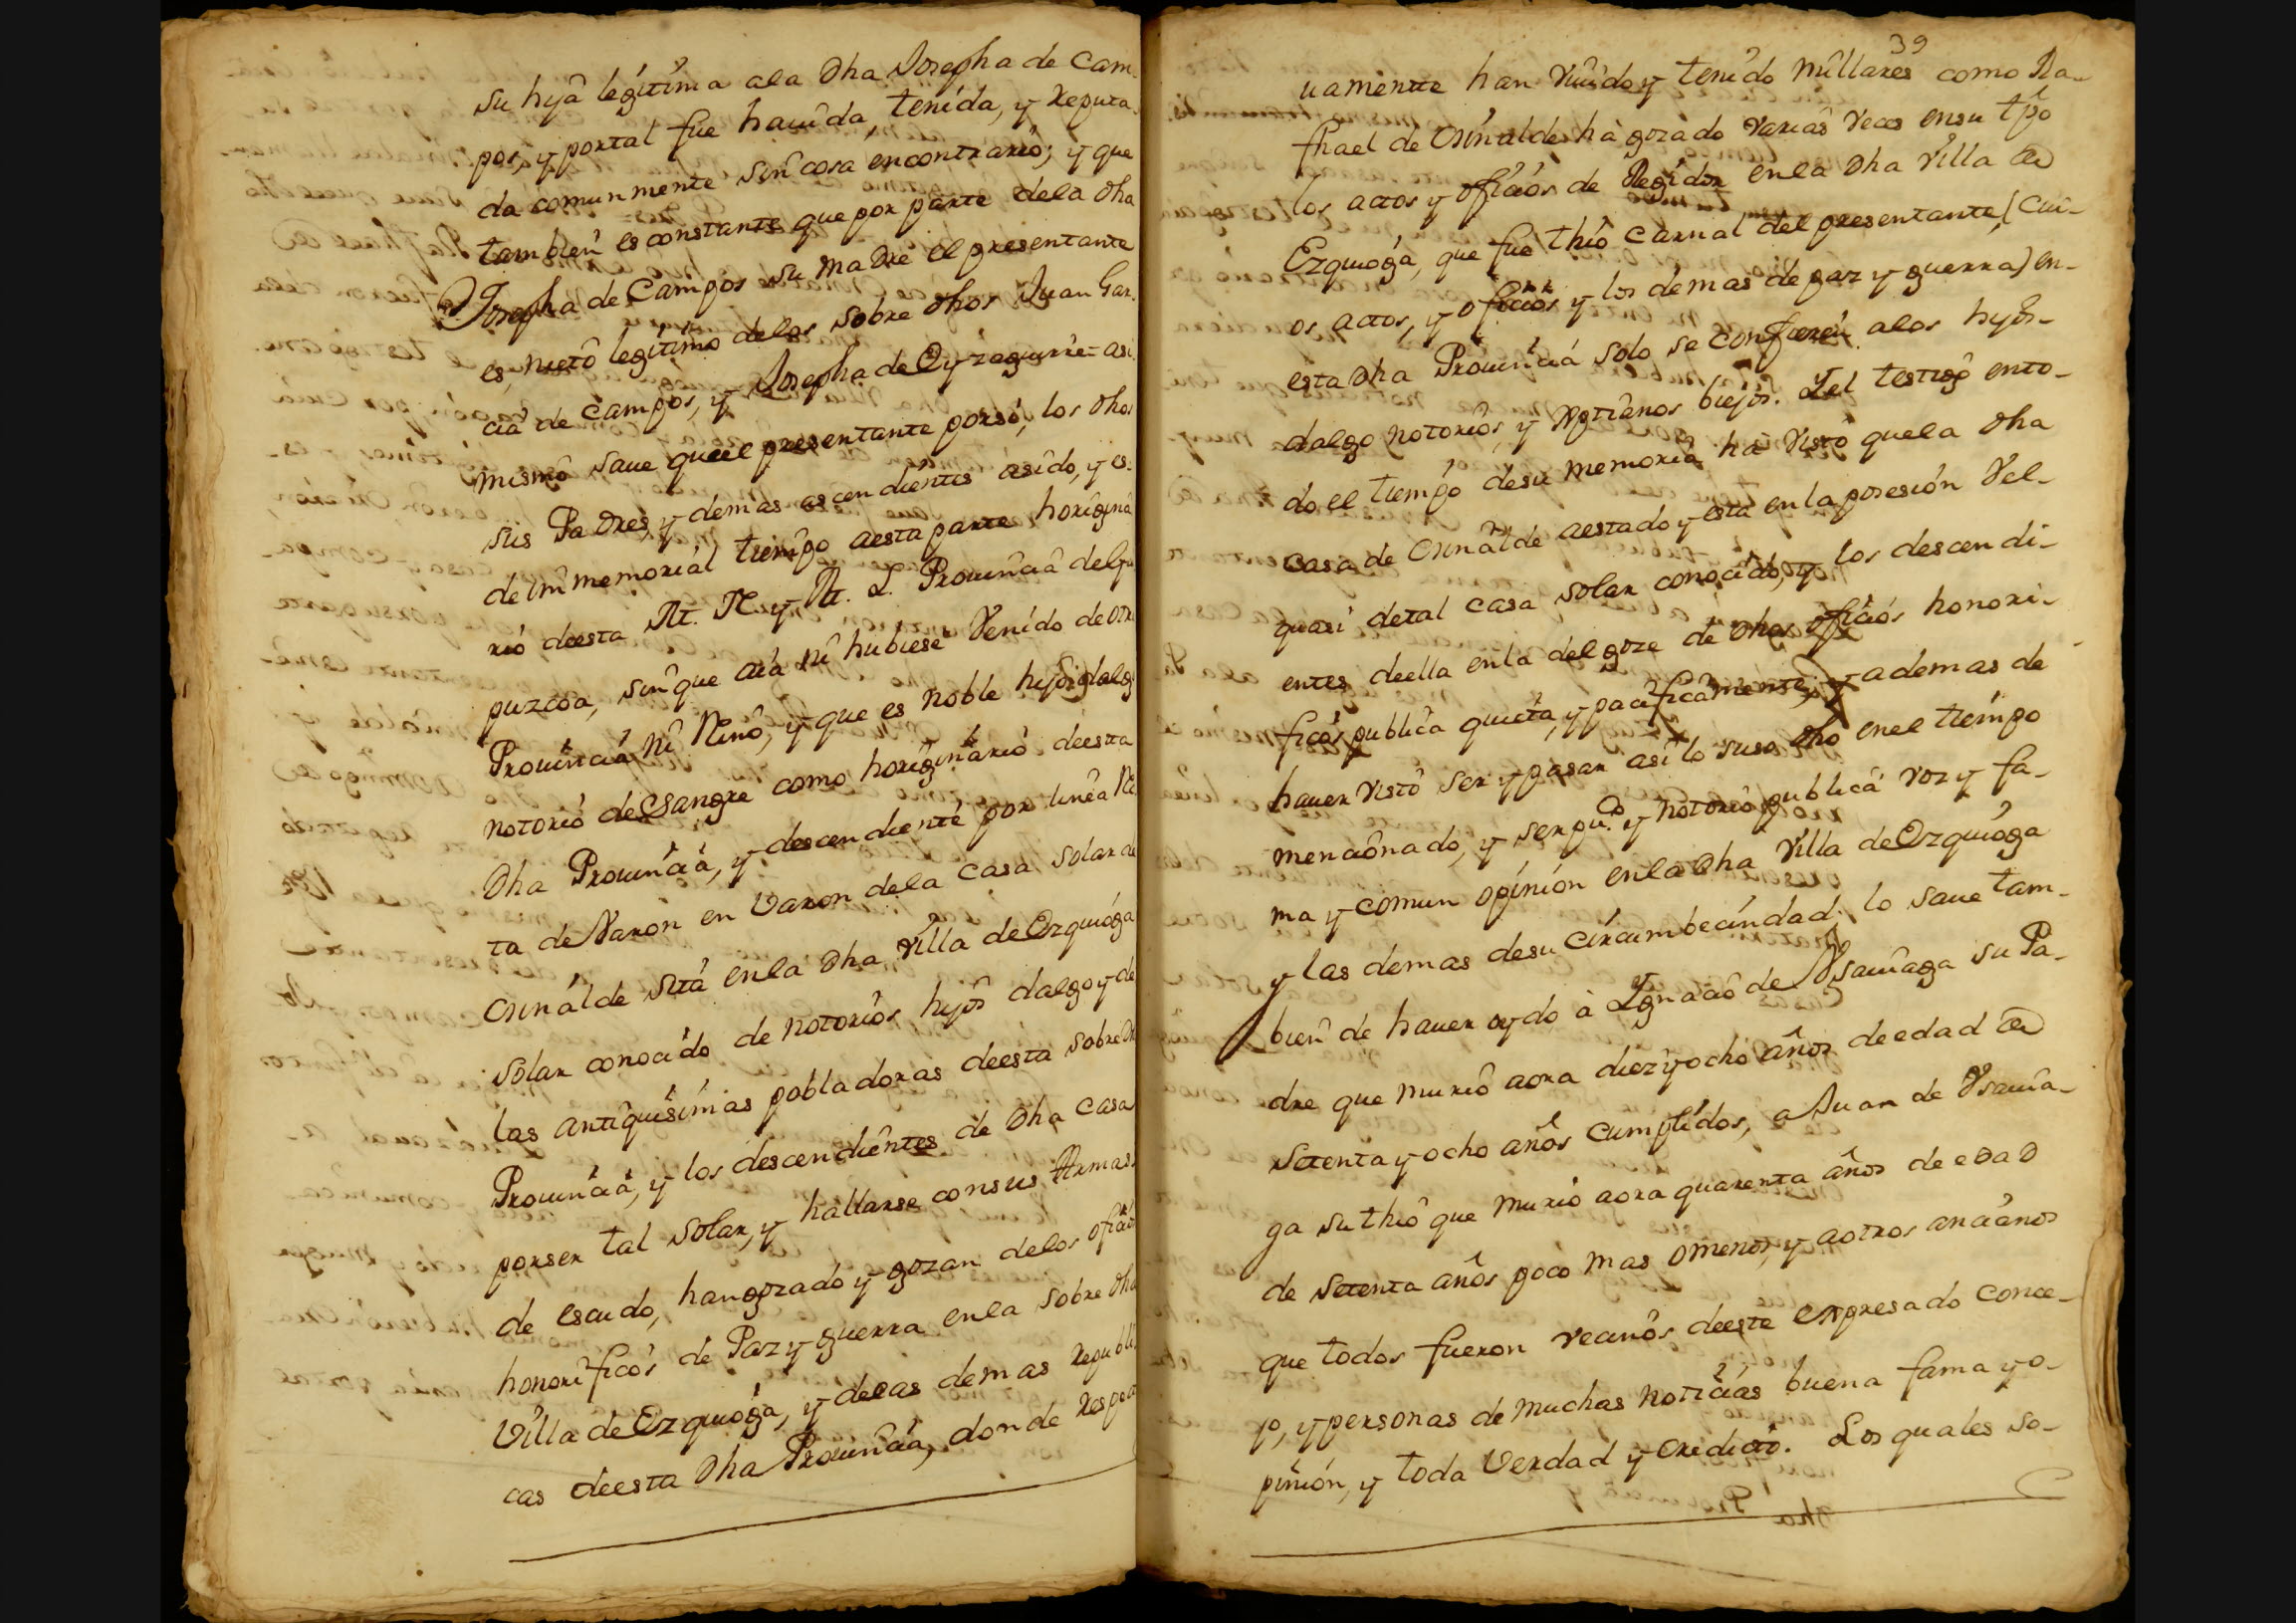 su hija legitima ala dha Josepha de Cam-
pos, y portal fue hauida, tenida, y reputa-
da comunmente sin cosa encontrario; y que
tambien es constante que por parte dela dha
Josepha de Campos su madre el presentante
es, nieto legitimo delos sobre dhos Juan Gar-
cia de Campos, y Josepha de Oyzaguirre = asi
mismo saue queel presentante porsi, los dhos
sus Padres, y demas ascendientes asido, y es-
de immemorial tiempo aesta parte horigina
rio deesta M. N. y M. L. Prouincia de Gui
puzcoa, sin que aia ni hubiese Venido de otra
Prouincia ni Reino, y que es noble hijodalgo
notorio de Sangre como horiginario deesta
Dha Prouincia, y descendiente por linea Re
ta de Varon en Varon dela Casa Solar de
Orinalde sita enla Dha Villa de Ezquioga
solar conocido de notorios hijos dalgo y de
las antiquisimas pobladoras deesta sobre dha
Prouincia, y los descendientes de Dha Casa
porser tal Solar, y hallarse consus Armas
de escudo, hangozado y gozan delos oficios
honorificos de Paz y guerra enla sobre dha
Villa de Ezquioga, y delas demas republi
cas deesta Dha Prouincia, donde respecti
39
uamente han viuido y tenido millares como Ra-
fhael de Orinalde ha gozado varias veces ensu tpo
los actos y oficios de Regidor enla Dha Villa de
Ezquioga, que fue thio carnal del presentante, (Cui-
os actos, y oficios y los demas de paz y guerra) en-
esta Dha Prouincia solo se confieren alos hijos-
dalgo notorios, y Xptianos biejos. Yel testigo ento-
do el tiempo desu memoria ha visto quela dha
casa de Orinalde aestado y esta enla posesion Vel-
quasi detal casa solar conocido, y los descendi-
entes deella enla delgoze de dhos oficios honori-
ficos publica quieta, y pacificamente, y ademas de
hauer visto ser y pasar asi lo suso dho enel tiempo
mencionado, y ser pu.co y notorio publica voz y fa-
ma y comun opinion enla Dha Villa de Ezquioga
y las demas desu circumbecindad; lo saue tam-
bien de hauer oydo à Ygnacio de Ysauiaga su Pa-
dre que murio aora diez y ocho años deedad de
setenta y ocho años cumplidos, a Juan de Ysauia-
ga su thio que murio aora quarenta años de edad
de setenta años poco mas omenos, y aotros ancianos
que todos fueron vecinos deeste expresado conce-
jo, y personas de muchas noticias buena fama y o-
pinion, y toda Verdad y credicto. Los quales so-